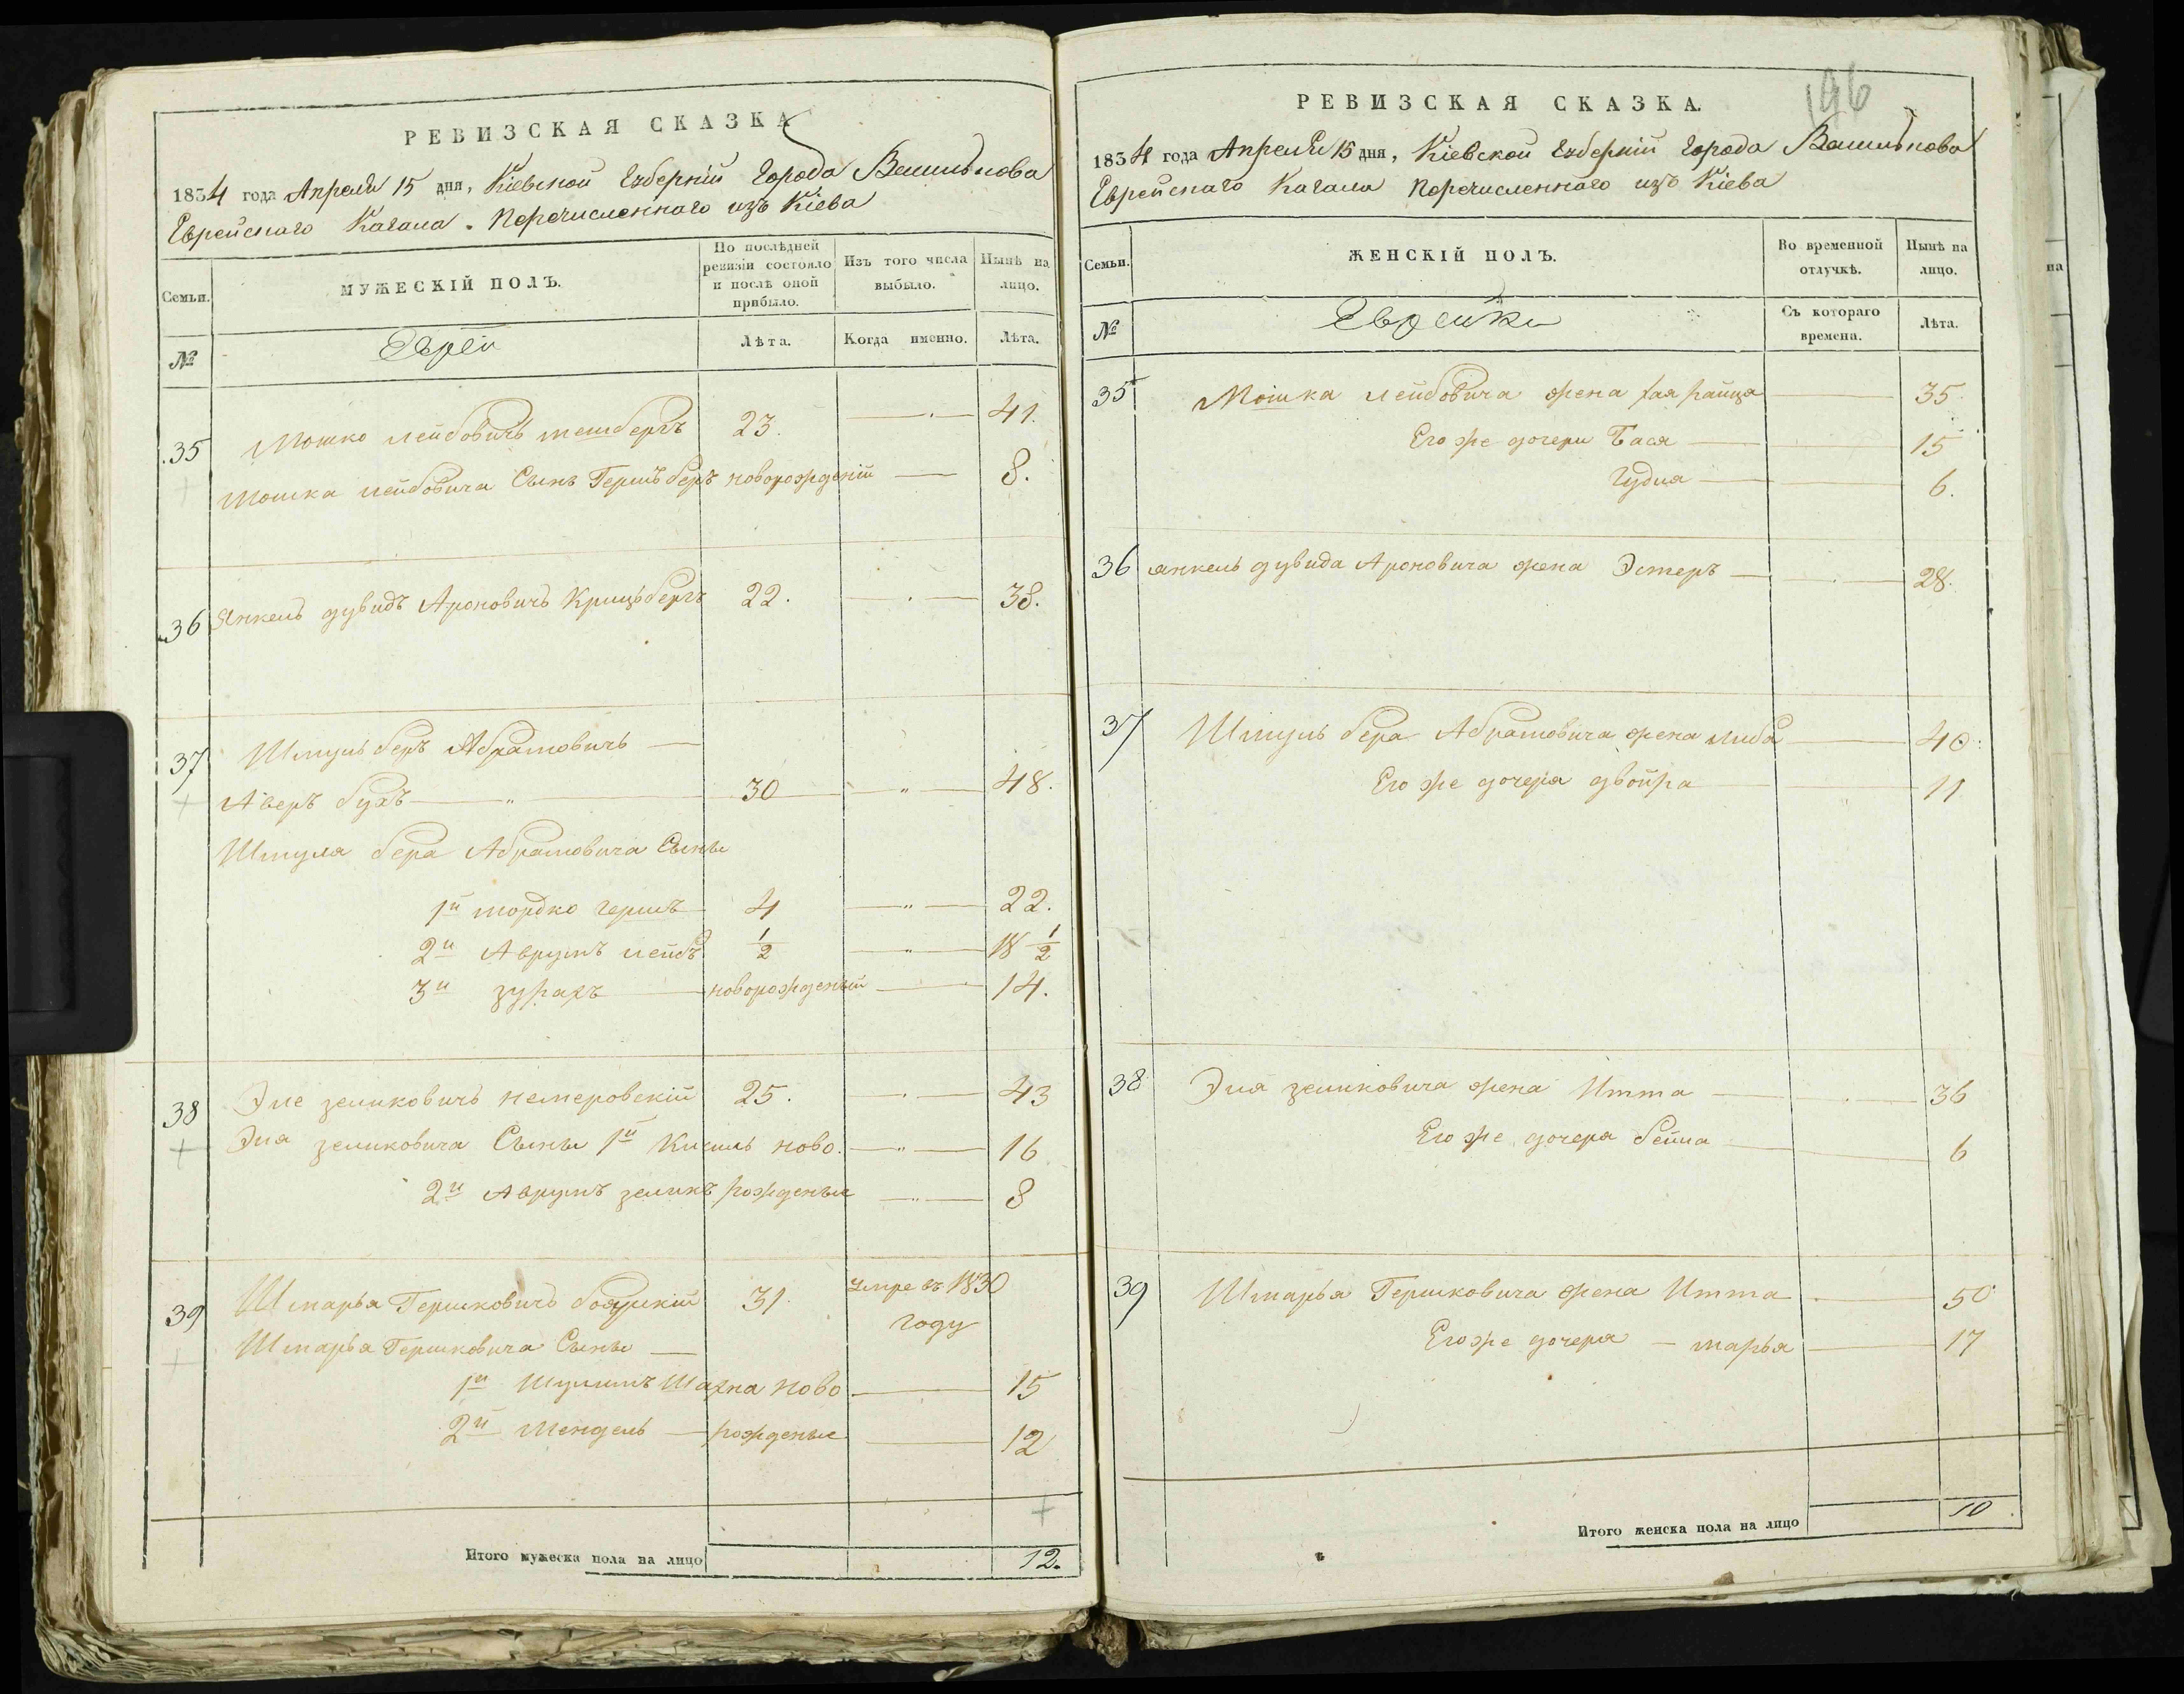 РЕВИЗСКАЯ СКАЗКА
1834 года Апреля 15 дня, Кіевской Губерніи Города Василькова
Еврейскаго Кагала. Перечисленнаго изъ Кіева
Семьи.
МУЖЕСКІЙ ПОЛЪ.
По послѣдней ревизіи состояло и послѣ оной прибыло.
Изъ того числа выбыло.
Нынѣ на лицо.
№
Евреи
Лѣта.
Когда именно.
Лѣта.
35 Мошко Лейбовичъ 23. 41.
Мошка Лейбовича Сынъ Гершъ беръ новорожденій 8.
36 Янкель дувидъ Ароновичъ Крицъбергъ 22. 38.
37 Шмуль беръ Абрамовичъ
Аверъ бухъ 30 48.
Шмуля бера Абрамовича Сыны
1й мордко гершъ 4 22.
2й Аврумъ лейбъ 1/2 18 1/2
3й зурахъ новорожденый 14.
38 Эле зеликовичъ немеровскій 25. 43
Эля зеликовича Сыны 1й Кисиль ново 16
2й Аврумъ зеликъ рожденые 8
39 Шмарья Гершковичъ боярскій 31. умре въ 1830
году
Шмарья Гершковича Сыны
1й Шулимъ Шахна ново 15
2й Мендель рожденые 12
Итого мужеска пола на лицо 12.
196
РЕВИЗСКАЯ СКАЗКА.
1834 года Апреля 15 дня, Кіевской Губерніи Города Василькова
Еврейскаго Кагала Перечисленнаго изъ Кіева
Семьи.
ЖЕНСКІЙ ПОЛЪ.
Во временной отлучкѣ.
Нынѣ на лицо.
№
Еврейки
Съ котораго времена.
Лѣта.
35 Мошка лейбовича жена хая райца 35.
Его же дочери Бася 15
Гудля 6.
36 янкель дувида Ароновича жена Эстеръ 28.
37 Шмуль бера Абрамовича жена либа 40.
Его же дочеря двойра 11
38 Эля зеликовича жена Итта 36
Его же дочеря бейла 6
39 Шмарья Гершковича жена Итта 50
Его же дочеря марья 17
Итого женска пола на лицо 10